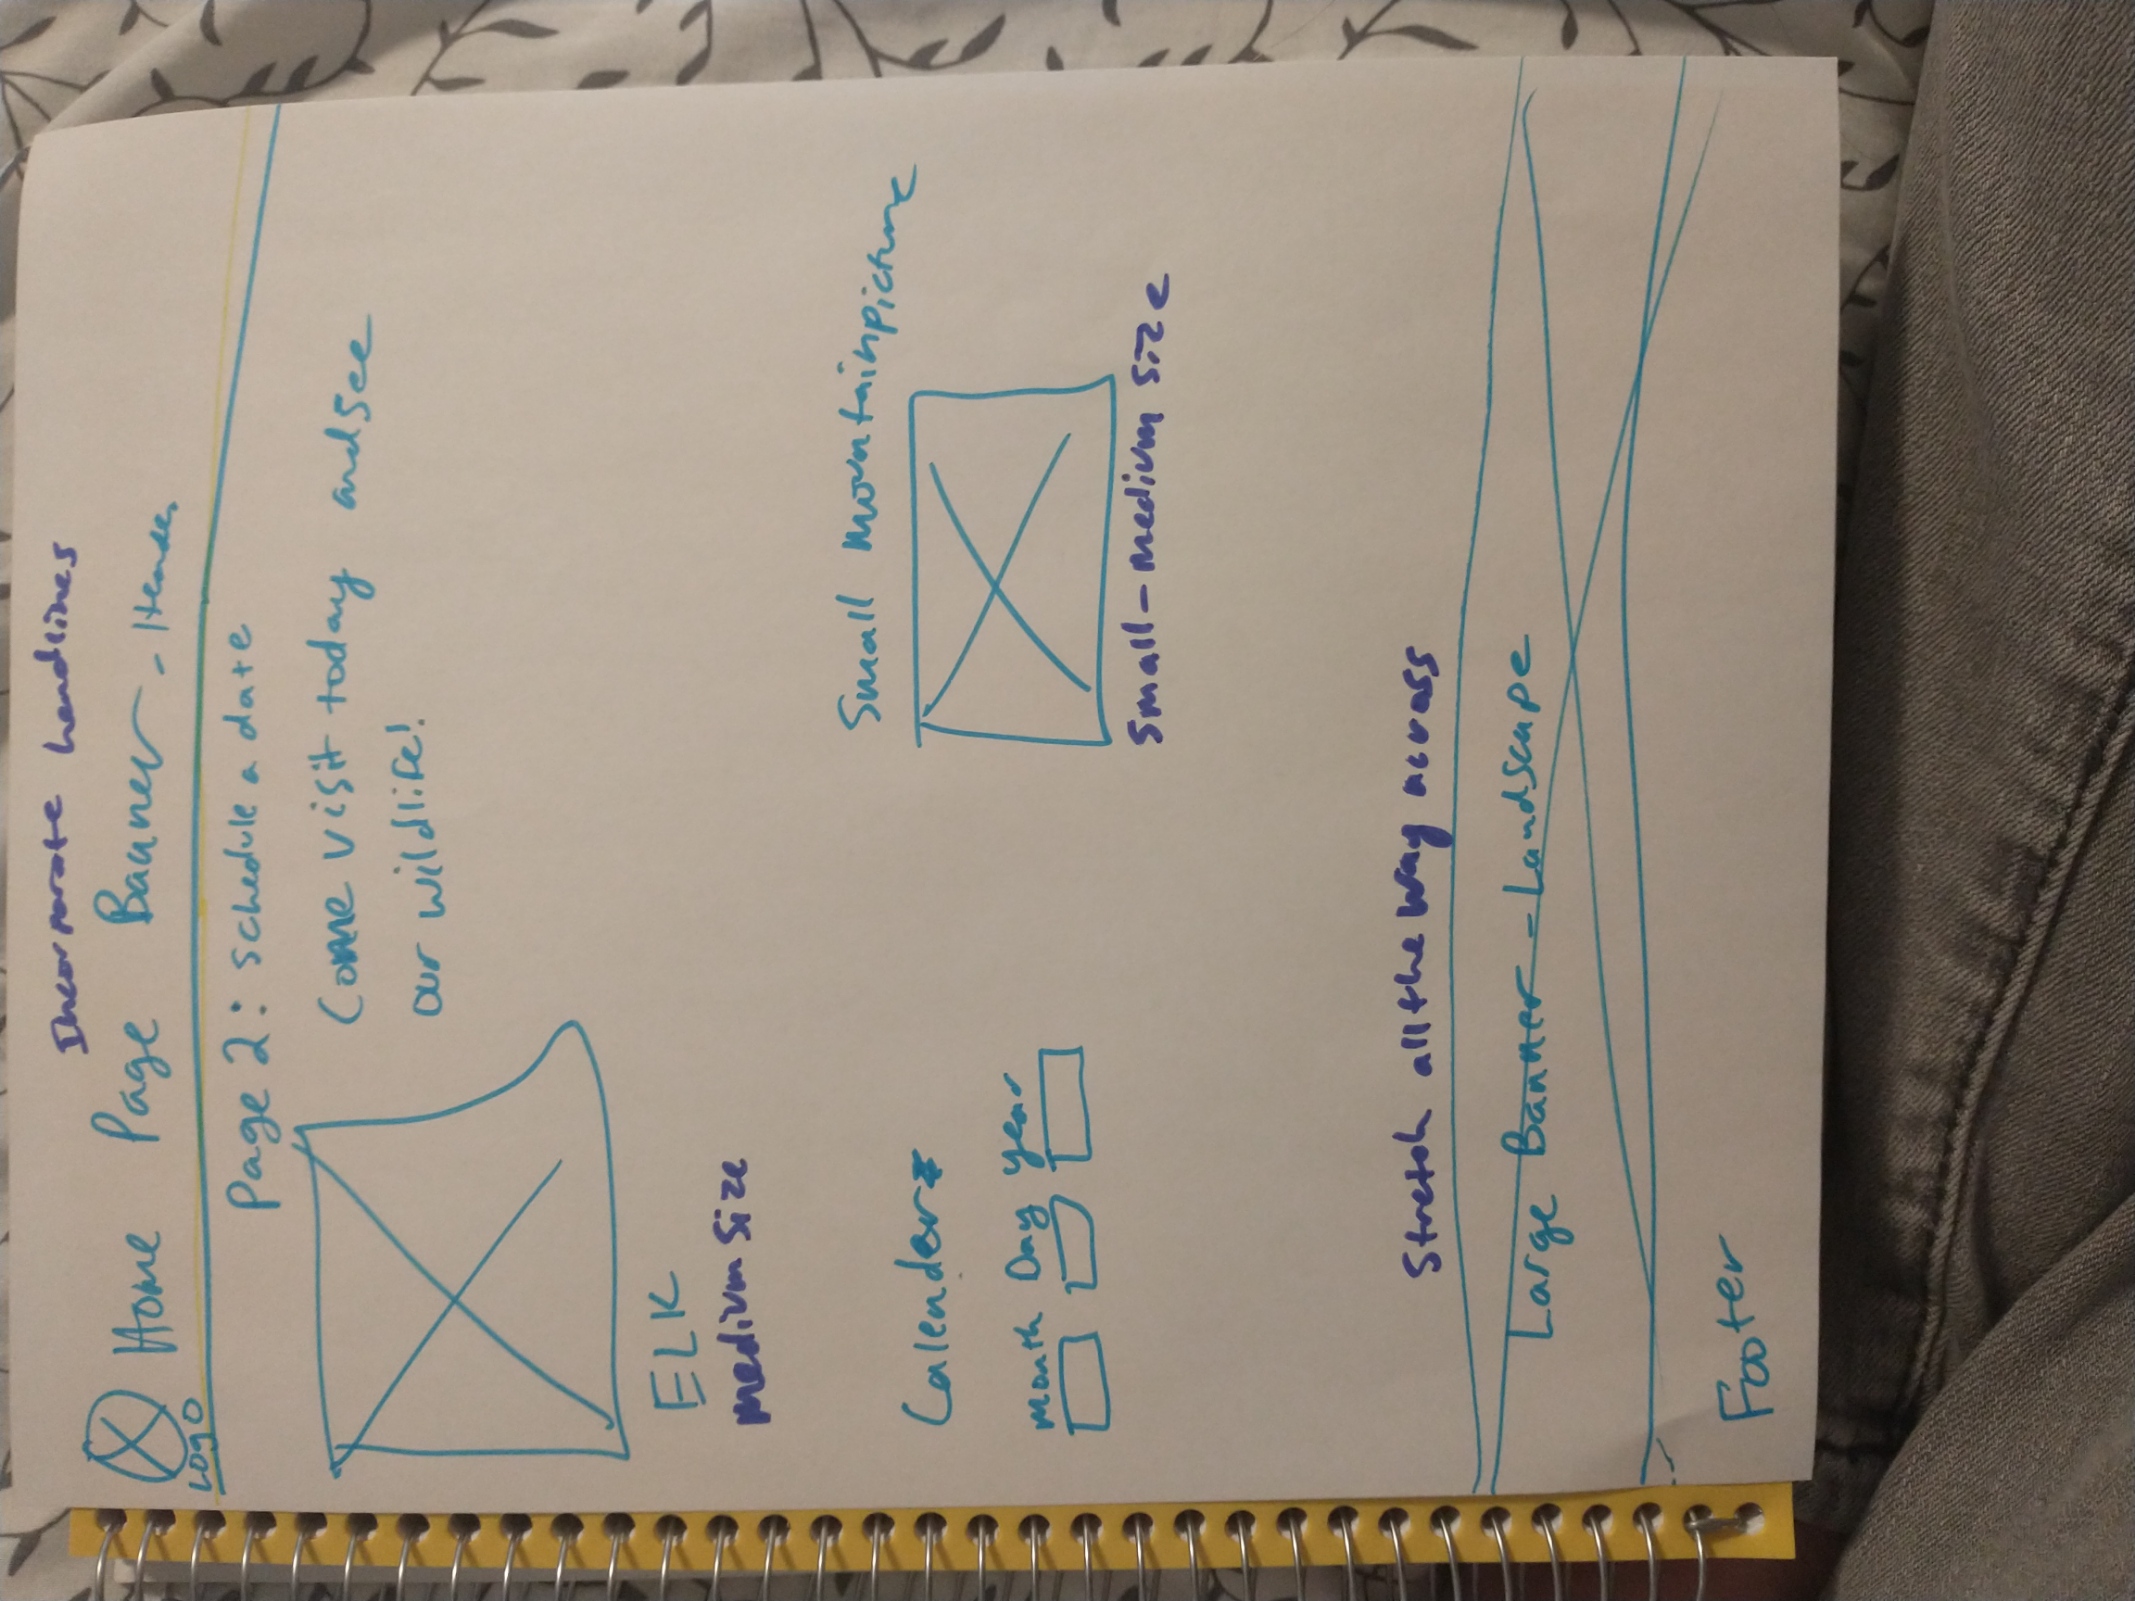 Incorporate headlines
Home Page Banner - Header
Logo
Page 2: Schedule a date
Come visit today and see
our wildlife!
ELK
medium size
Small mountain picture
Calender
month Day year
Small-medium size
Stretch all the way across
Large Banner - Landscape
Footer